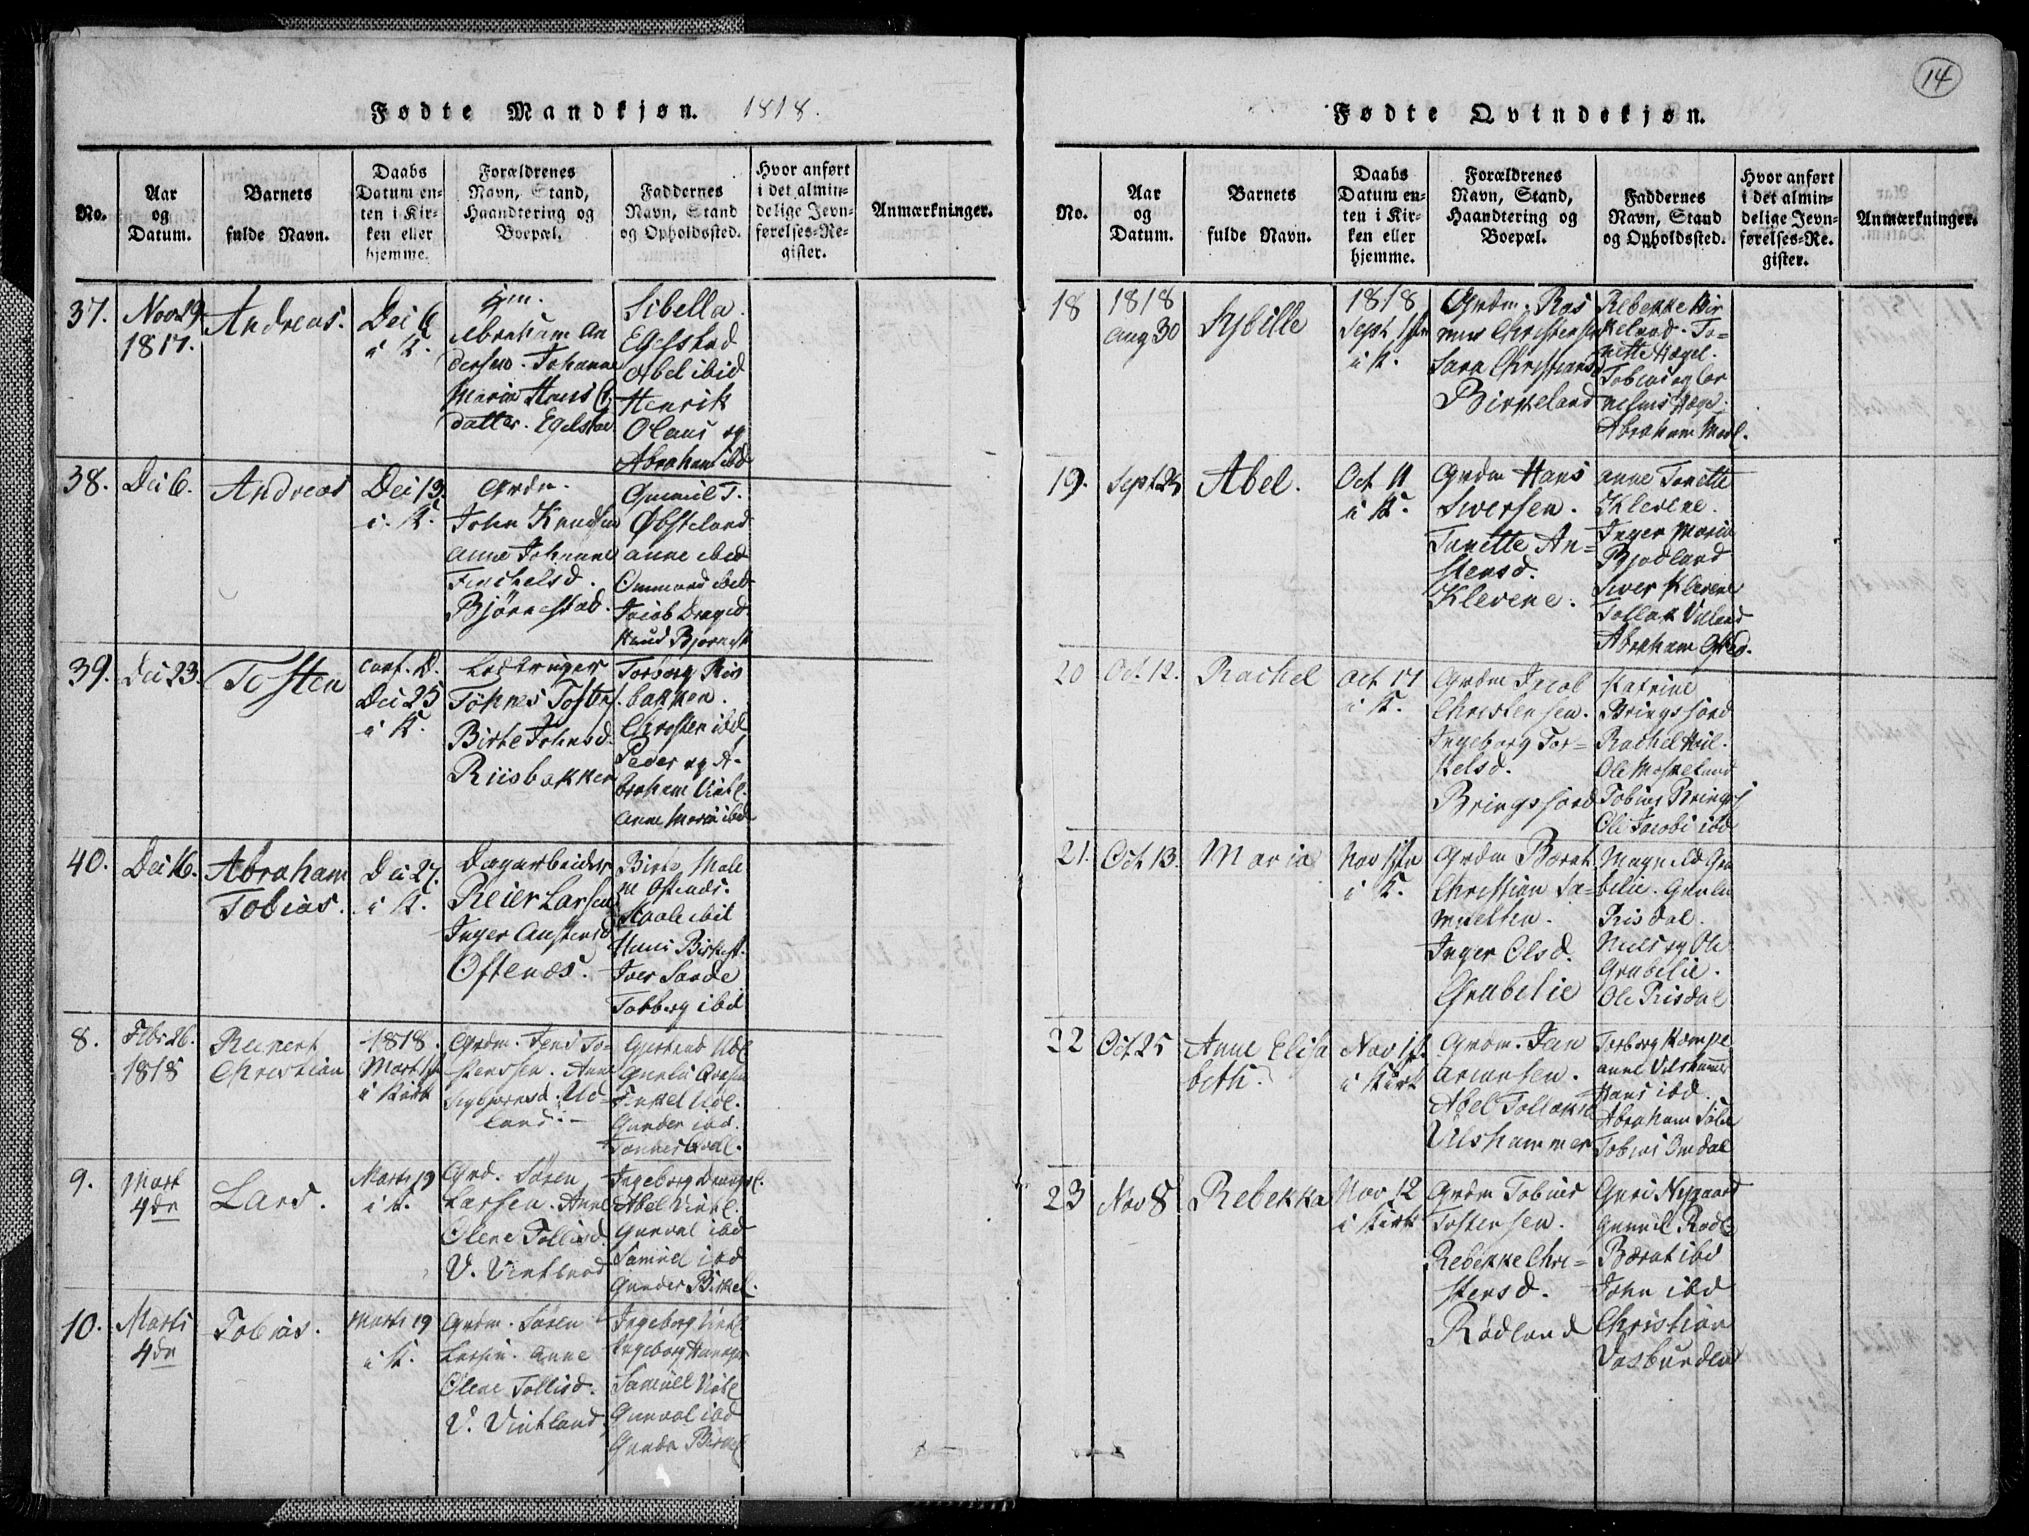 14
Fødte Mandkjøn. 1818.
No.
Aar
og
Datum.
Barnets
fulde Navn.
Daabs
Datum en-
ten i Kir-
ken eller
hjemme.
Forældrenes
Navn, Stand,
Haandtering og
Boepæl.
Faddernes
Navn, Stand
og Opholdssted.
Hvor anført
i det almin-
delige Jevn-
førelses-Re-
gister.
Anmærkninger.
37.
Nov 29
1817.
Andreas.
Dei 6
i K.
Abraham An
dersen. Johanne
Maria Hans
datter. Egelstad
Sibella
Egelstad
Abel ibid
Henrik
Olaus og
Abraham ibd
38.
Dei 6.
Andreas
Dei 13.
i. K.
Grdm.
John Knudsen
Anne Johanne
Bjørnestad.
Gunnild T.
Øbsteland
anne ibid
Ommund ibid
Jacob Draged
Knud Bjørnest
39.
Dei 23.
Tosten
conf. D.
Dei 25
i K.
Tønnes Tosters
Birte Johnsd.
Riisbakken
Torborg Riis
bakken.
Christen ibd
Peder og A-
braham Vintl.
Anne Maria ibd
40.
Dei 16.
Abraham
Tobias.
Dei 27.
i K.
Dagarbeider
Reier Larsen
Inger Austensd
Oftenæs.
Birte Male
ne Oftenæs.
Staale ibid
Hans Birkest.
Iver Sande
Torborg ibid
8.
Feb 26.
1818
Reinert
Christian
1818.
Mart 1ste
i Kirk
Grdm. Jens To-
stensen. Anne
Sigbjørnsd. Ud-
land.-
Gunder ibd.
9.
Mart
4de
Lars.
Marti 19
i K.
Grd. Søren
Larsen. Anne
Olene Tollisd.
V. Vintland
Abel Vintl.
Gunval ibd
Samuel ibd
Gunder Birkel.
10.
Marti
4de
Tobias.
Marti 19
i K.
Grdm. Søren
Larsen. Anne
Olene Tollisd.
V. Vintland
Ingeborg Vintl
Samuel Vintl
Gunval ibd
Gunder Birkel
Fødte Qvindekjøn.
No.
Aar
og
Datum.
Barnets
fulde Navn.
Daabs
Datum en-
ten i Kir-
ken eller
hjemme.
Forældrenes
Navn, Stand,
Haandtering og
Boepæl.
Faddernes
Navn, Stand
og Opholdssted.
Hvor anført
i det almin-
delige Jevn-
førelses-Re-
gister.
Anmærkninger.
18
1818
Aug 30
Sybille
1818
Sept
i K.
Grdm. Ras
mus Christensen
Sara Christiansd
Birkeland
Rebekke Bir
keland. To-
nette Hægel.
Tobias og Cor
nelius Hæge.
Abraham Mosl.
19.
Sept 25
Abel.
Oct 11
i K.
Grdm Hans
Sversen.
Tanette An-
stensd.
Klevene.
Anne Tonette
Klevene.
Inger Maria
Bjodland
Siver Klevene
Tollak Udland
Abraham
20
Oct. 12.
Rachel
Oct 17
i K.
Grdm Jacob
Christensen.
Ingeborg Ter-
kelsd.
Bringsjord
Katrine
Bringsjord
Rachel
Ole Moskeland
Tobias Bringsj
Ole Jacobi ibd
21.
Oct 13.
Maria
Nov 1ste
i K.
Grdm Børut
Christian Sa-
muelsen.
Inger Olsd.
Grabelie
Magnild Gra
belie. Gunla
Risdal.
Niels og Ole
Grabelie.
Ole Risdal
22
Oct 25
Anne Elisa
beth.
Nov 1st.
i Kirk
Grdm. Jan
Abel Tollaksd
Ulshammer
Torborg Kompe
Anne Ulshammer
Hans ibd.
Abraham
Tobias Omdal
23
Nov 8
Rebekka
Nov 12
i Kirk
Grdm Tobias
Tostensen.
Rebekke Chri-
stensd.
Rødland
Guri Nygaard
Gunnil Rødl
Børut ibd
John ibd
Christian